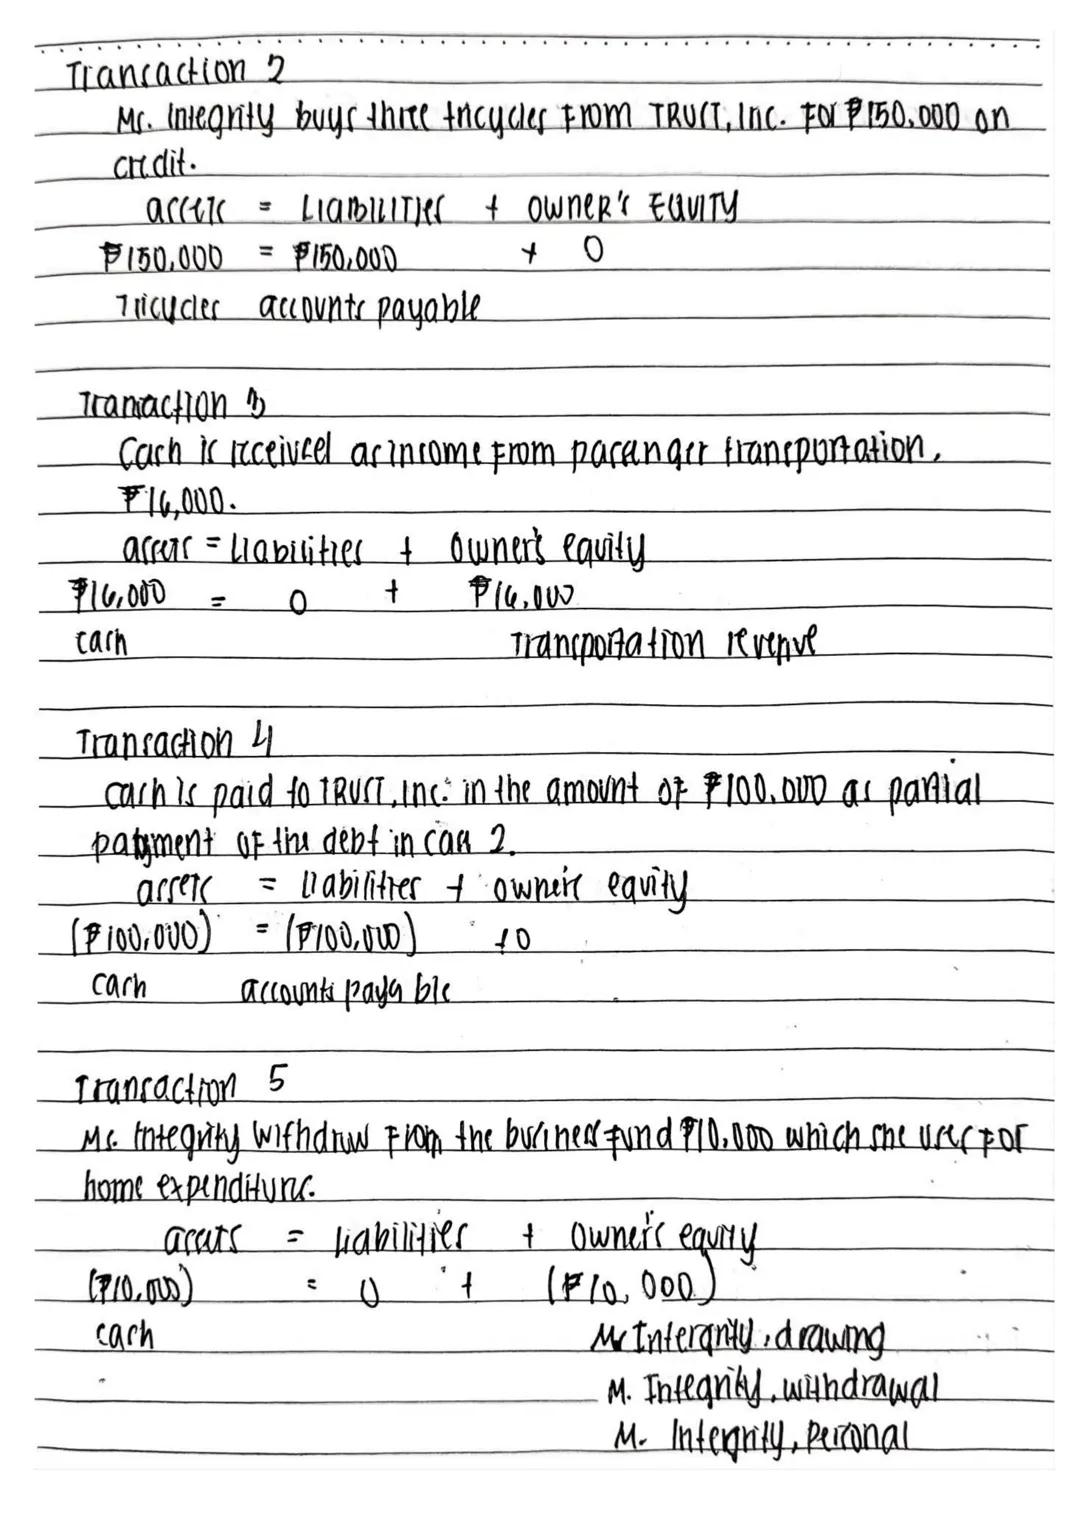 Transaction 2
Mr. Integrity buys three tricycles from TRUST, Inc. For ₱150,000 on
credit.
assets = LIABILITIES + OWNER'S EQUITY
₱150,000 = ₱150,000 + 0
Tricycles accounts payable
Transaction 3
Cash is received as income From passenger transportation,
₱16,000.
assets = Liabilities + Owner's equity
₱16,000 = 0 + ₱16,000
cash Transportation revenue
Transaction 4
cash is paid to TRUST, Inc. in the amount of ₱100,000 as partial
payment of the debt in case 2.
assets = liabilities + owner's equity
(₱100,000) = (₱100,000) + 0
cash accounts payable
Transaction 5
Mr. Integrity withdraw From the business fund ₱10,000 which she uses For
home expenditure.
assets = liabilities + Owner's equity
(₱10,000) = 0 + (₱10,000)
cash Mr Intergrity, drawing
M. Integrity, withdrawal
M. Integrity, personal